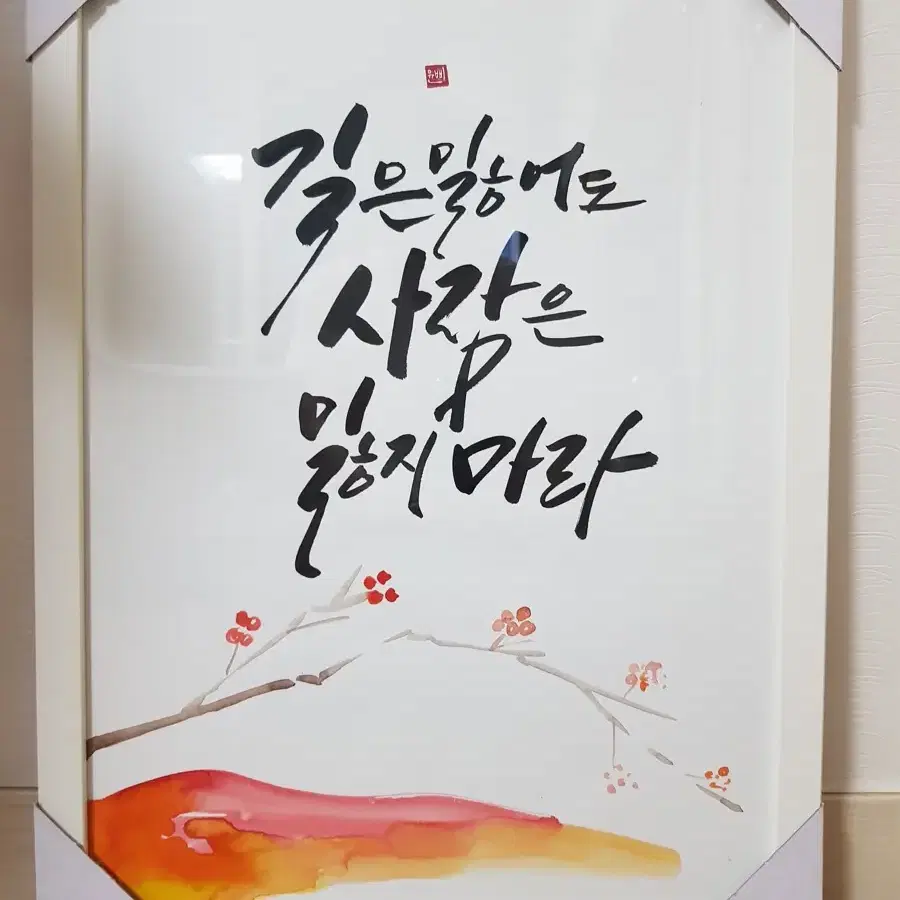 길은 잃어도
사람은
잃지 마라